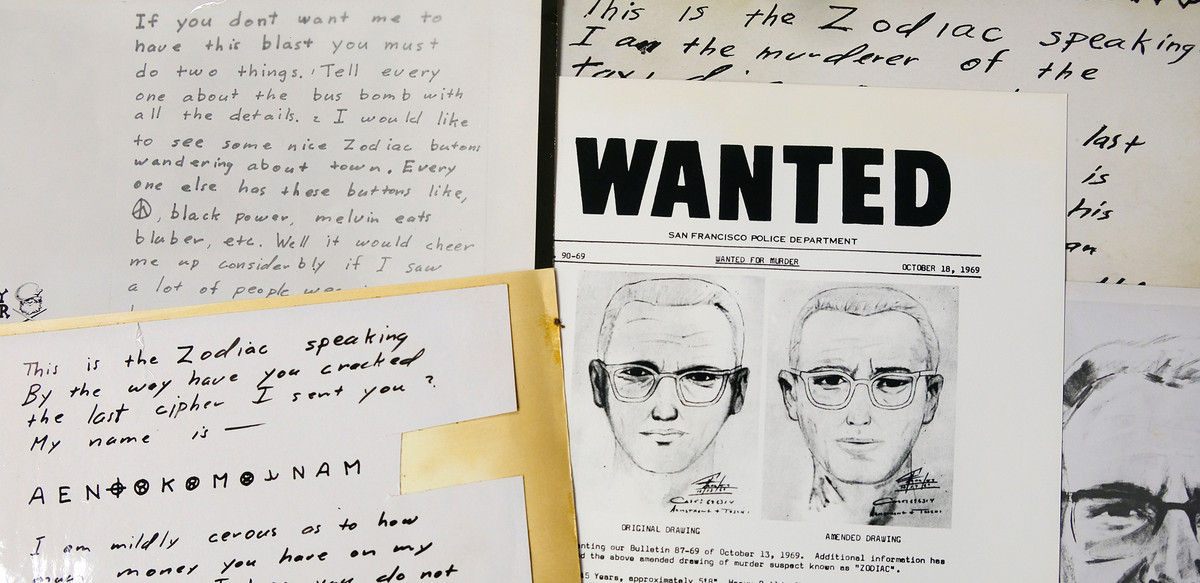 If you dont want me to
have this blast you must
do two things. 1 Tell every
one about the bus bomb with
all the details. 2 I would like
to see some nice Zodiac butons
wandering about town. Every
one else has these buttons like,
☮, black power, melvin eats
bluber, etc. Well it would cheer
me up considerbly if I saw
a lot of people
This is the Zodiac speaking
By the way have you cracked
the last cipher I sent you?
My name is —
A E N ⊕ K M N A M
I am mildly cerous as to how
much money you have on my
you do not
This is the Zodiac speaking
I am the murderer of the
last
is
his
WANTED
SAN FRANCISCO POLICE DEPARTMENT
90-69 WANTED FOR MURDER OCTOBER 18, 1969
ORIGINAL DRAWING AMENDED DRAWING
our Bulletin 87-69 of October 13, 1969. Additional information has
the above amended drawing of murder suspect known as "ZODIAC".
Years, approximately 5'8"